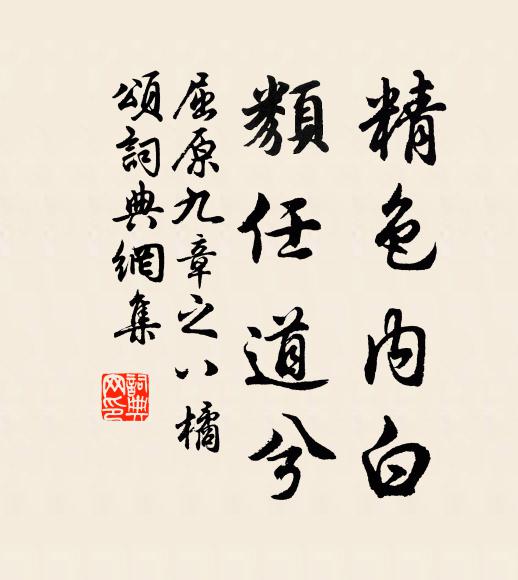 精色內白
類任道兮
屈原九章之八橘
頌詞典網集
詞典
网印